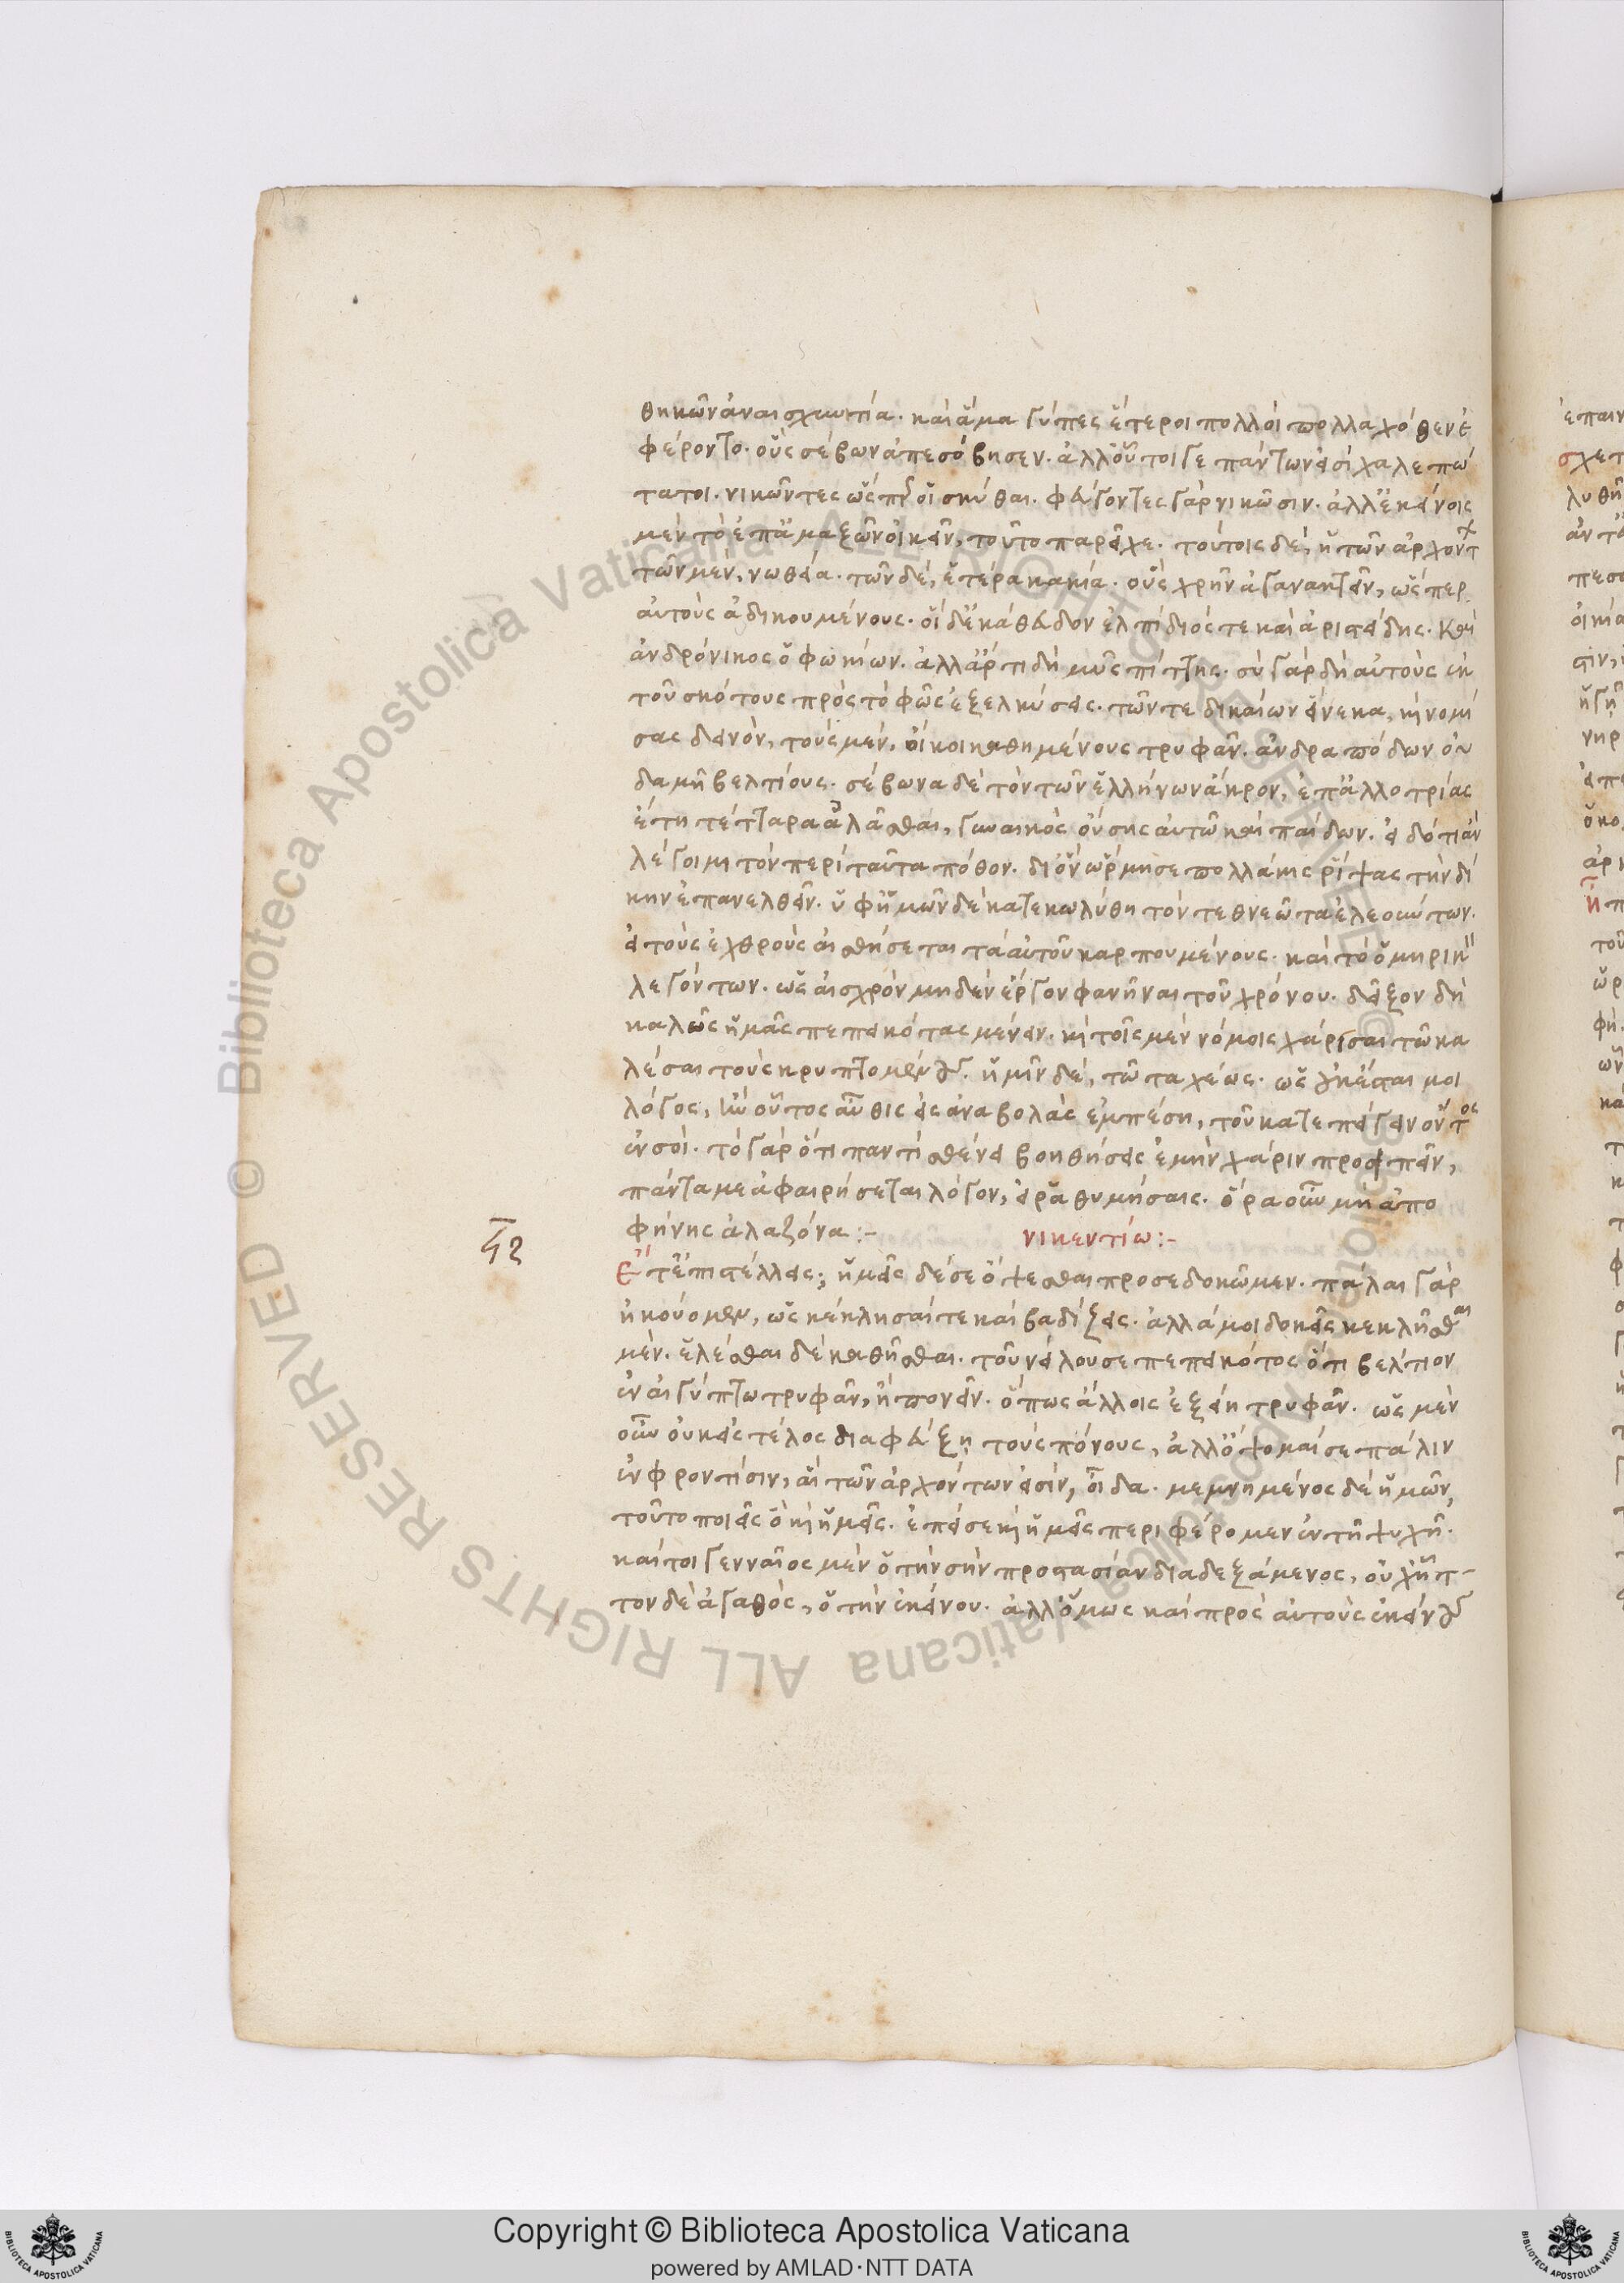 θηκῶν ἀναισχυντία. καὶ ἅμα γύπες ἕτεροι πολλοὶ πολλαχόθεν ἐ
φέροντο. οὓς σέβων ἀπεσόβησεν. ἀλλ' οὗτοι γε πάντων εἰσὶ χαλεπώ
τατοι. νικῶντες ὥσπερ οἱ σκύθαι. φεύγοντες γὰρ νικῶσιν. ἀλλ' ἐκείνοις
μὲν τὸ ἐφ' ἁμαξῶν οἰκεῖν, τοῦτο παρεῖχε. τούτοις δὲ, ἡ τῶν ἀρχόντ
τῶν μὲν, νωθεία. τῶν δὲ, ἑτέρα κακία. οὓς χρῆν ἀγανακτεῖν, ὥσπερ
αὐτοὺς ἀδικουμένους. οἱ δ' ἐκάθευδον ἐλπίδιός τε καὶ ἀριστείδης. καὶ
ἀνδρόνικος ὁ φωκίων. ἀλλ' ἄρτι δὴ μῦς πίττης. σὺ γὰρ δὴ αὐτοὺς ἐκ
τοῦ σκότους πρὸς τὸ φῶς ἐξελκύσεις. τῶν τε δικαίων εἵνεκα, καὶ νομί
σας δεινὸν, τοὺς μὲν, οἴκοι καθημένους τρυφᾶν. ἀνδραπόδων οὐ
δαμῆ βελτίους. σέβωνα δὲ τὸν τῶν ἑλλήνων ἄκρον, ἐπ' ἀλλοτρίας
ἔτη τέτταρα ἀλᾶσθαι, γυναικὸς οὔσης αὐτῶ καὶ παίδων. εἰδότι ἂν
λέγοιμι τὸν περὶ ταῦτα πόθον. δι' ὃν ὥρμησε πολλάκις ῥίψας τὴν δί
κην ἐπανελθεῖν. ὑφ' ἡμῶν δὲ κατεκωλύθη τὸν τεθνεῶτα ἐλεούντων.
εἰ τοὺς ἐχθροὺς αἰσθήσεται τὰ αὐτοῦ καρπουμένους. καὶ τὸ ὁμηρικὸν
λεγόντων. ὡς αἰσχρὸν μηδὲν ἔργον φανῆναι τοῦ χρόνου. δεῖξον δὴ
καλῶς ἡμᾶς πεπεικότας μένειν. καὶ τοῖς μὲν νόμοις χάρισαι τῶ κα
λέσαι τοὺς κρυπτομένους. ἡμῖν δὲ, τῶ ταχέως. ὡς
λόγος, οὗτος αὖθις εἰς ἀναβολὰς ἐμπέση, τοῦ κατεπείγειν ὄντος
ἐν σοί. τὸ γὰρ ὅτι παντὶ σθένει βοηθήσεις ἐμὴν χάριν προσειπεῖν,
πάντα με ἀφαιρήσεται λόγον, εἰ ῥαθυμήσαις. ὅρα οὖν μὴ ἀπο
φήνης ἀλαζόνα:-
νικεντίω:-
Ἔτ' ἐπιστέλλεις; ἡμᾶς δέ σε ὄψεσθαι προσεδοκῶμεν. πάλαι γὰρ
ἠκούομεν, ὡς κέκλησαί τε καὶ βαδίζεις. ἀλλά μοι δοκεῖς κεκλῆσθαι
μὲν. ἑλέσθαι δὲ καθῆσθαι. τοῦ νείλου σε πεπεικότος ὅτι βέλτιον
ἐν αἰγύπτω τρυφᾶν, ἢ πονεῖν. ὅπως ἄλλοις ἐξείη τρυφᾶν. ὡς μὲν
οὖν οὐκ εἰς τέλος διαφεύξη τοὺς πόνους, ἀλλ' ὄψομαί σε πάλιν
ἐν φροντίσιν, αἳ τῶν ἀρχόντων εἰσὶν, οἶδα. μεμνημένος δὲ ἡμῶν,
τοῦτο ποιεῖς ὃ καὶ ἡμεῖς. ἐπεί σε καὶ ἡμεῖς περιφέρομεν ἐν τῆ ψυχῆ.
καίτοι γενναῖος μὲν ὁ τὴν σὴν προστασίαν διαδεξάμενος, οὐχ ἧτ-
τον δὲ ἀγαθὸς, ὁ τὴν ἐκείνου. ἀλλ' ὅμως καὶ πρὸς αὐτοὺς ἐκείνους
Copyright © Biblioteca Apostolica Vaticana
powered by AMLAD·NTT DATA